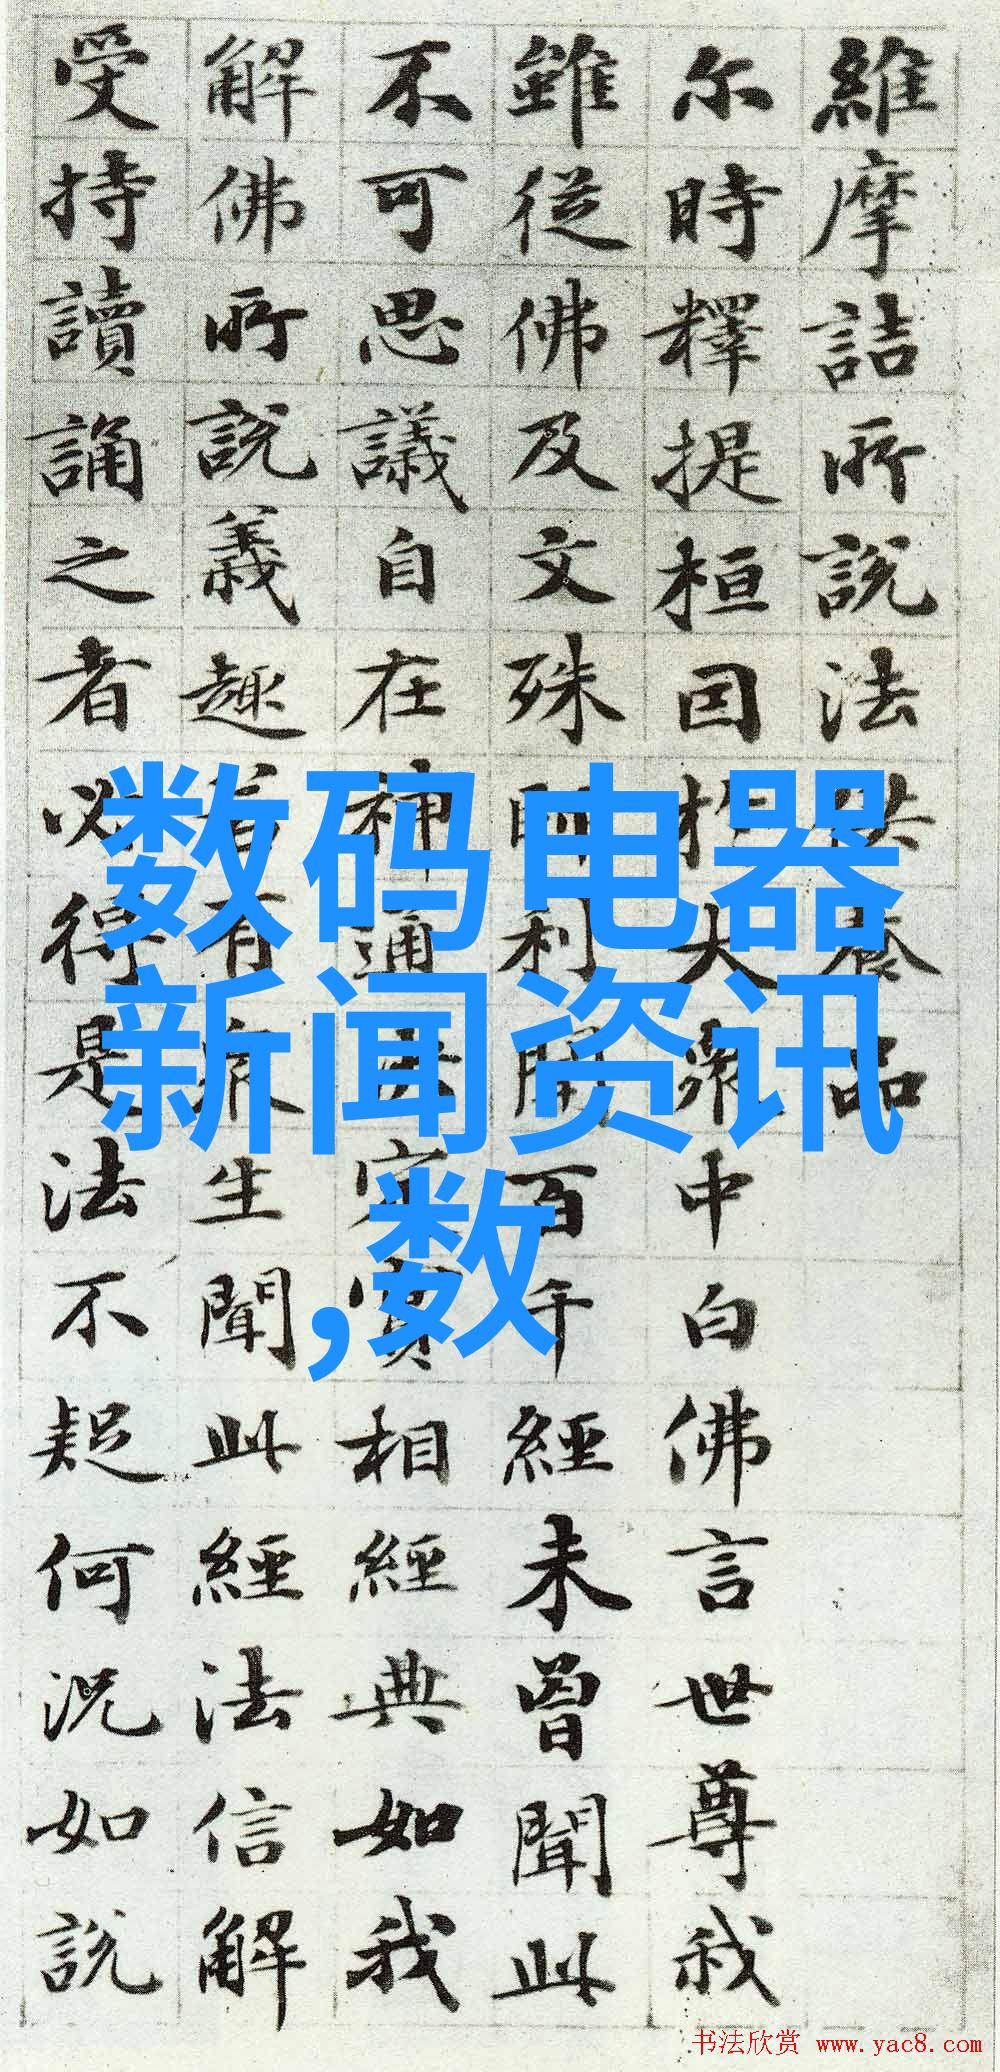 維摩詰所說法供養品
尔時釋提桓因於大衆中白佛言世尊我
雖從佛及文殊師利聞百千經未曾聞此
不可思議自在神通決定實相經典如我
解佛所說義趣若有衆生聞此經法信解
受持讀誦之者必得是法不疑何況如說
数码电器
新闻资讯
,数
书法欣赏 www.yac8.com